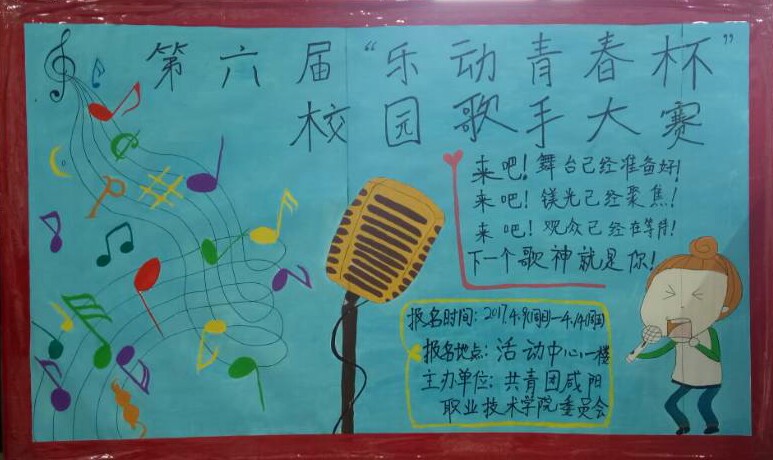 第六届“乐动青春杯”
校园歌手大赛
来吧!舞台已经准备好!
来吧!镁光已经聚焦!
来吧!观众已经在等待!
下一个歌神就是你!
报名时间:2017.4.9(周日)—4.14(周五)
报名地点:活动中心一楼
主办单位:共青团咸阳
职业技术学院委员会